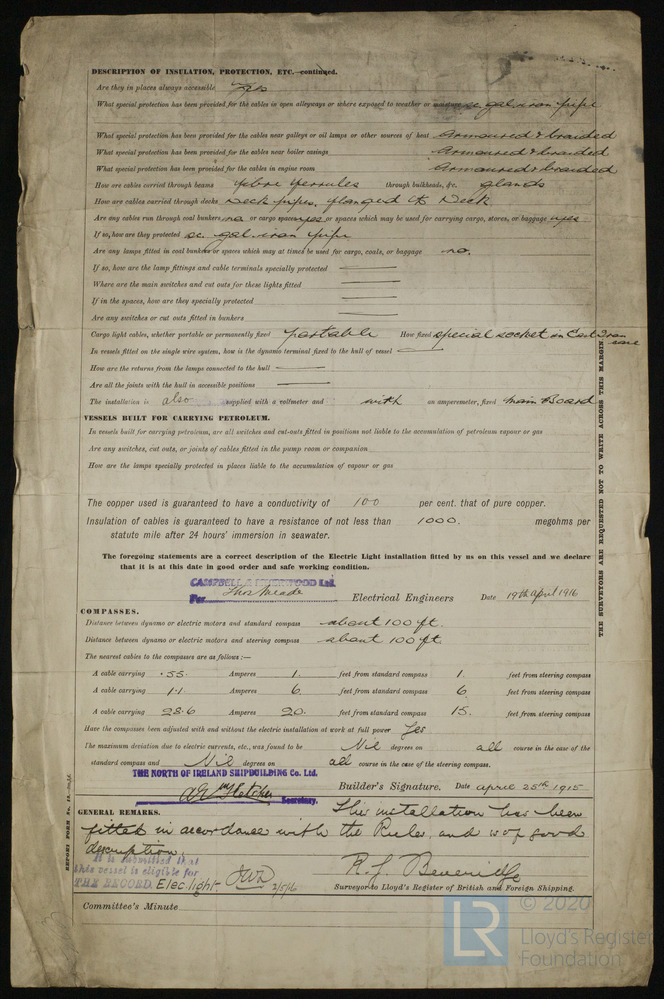 DESCRIPTION OF INSULATION, PROTECTION, ETC.—continued.
Are they in places always accessible Yes
What special protection has been provided for the cables in open alleyways or where exposed to weather or moisture sc. gal. iron pipe
What special protection has been provided for the cables near galleys or oil lamps or other sources of heat Armoured & braided
What special protection has been provided for the cables near boiler casings Armoured & braided
What special protection has been provided for the cables in engine room Armoured & braided
How are cables carried through beams fibre ferrules through bulkheads, &c. glands
How are cables carried through decks Deck pipes, flanged to Deck
Are any cables run through coal bunkers no or cargo spaces yes or spaces which may be used for carrying cargo, stores, or baggage yes
If so, how are they protected sc. gal. iron pipe
Are any lamps fitted in coal bunkers or spaces which may at times be used for cargo, coals, or baggage no.
If so, how are the lamp fittings and cable terminals specially protected
Where are the main switches and cut outs for these lights fitted
If in the spaces, how are they specially protected
Are any switches or cut outs fitted in bunkers
Cargo light cables, whether portable or permanently fixed portable How fixed special socket in Cast Iron case
In vessels fitted on the single wire system, how is the dynamo terminal fixed to the hull of vessel
How are the returns from the lamps connected to the hull
Are all the joints with the hull in accessible positions
The installation is also supplied with a voltmeter and with an amperemeter, fixed Main Board
VESSELS BUILT FOR CARRYING PETROLEUM.
In vessels built for carrying petroleum, are all switches and cut-outs fitted in positions not liable to the accumulation of petroleum vapour or gas
Are any switches, cut outs, or joints of cables fitted in the pump room or companion
How are the lamps specially protected in places liable to the accumulation of vapour or gas
The copper used is guaranteed to have a conductivity of 100 per cent. that of pure copper.
Insulation of cables is guaranteed to have a resistance of not less than 1000. megohms per
statute mile after 24 hours' immersion in seawater.
The foregoing statements are a correct description of the Electric Light installation fitted by us on this vessel and we declare
that it is at this date in good order and safe working condition.
CAMPBELL & ISHERWOOD Ltd.
For Thos Meade Electrical Engineers Date 19th April 1916
COMPASSES.
Distance between dynamo or electric motors and standard compass about 100 ft.
Distance between dynamo or electric motors and steering compass about 100 ft.
The nearest cables to the compasses are as follows:—
A cable carrying .55 Amperes 1. feet from standard compass 1. feet from steering compass
A cable carrying 1.1 Amperes 6. feet from standard compass 6 feet from steering compass
A cable carrying 28.6 Amperes 20. feet from standard compass 15. feet from steering compass
Have the compasses been adjusted with and without the electric installation at work at full power Yes
The maximum deviation due to electric currents, etc., was found to be Nil degrees on all course in the case of the
standard compass and Nil degrees on all course in the case of the steering compass.
THE NORTH OF IRELAND SHIPBUILDING Co. Ltd.
Secretary. Builder's Signature. Date April 25th 1915
GENERAL REMARKS. This installation has been
fitted in accordance with the Rules, and is of good
description.
It is submitted that
this vessel is eligible for
THE RECORD. Elec light. JWD 2/5/16
R. J. Beveridge
Surveyor to Lloyd's Register of British and Foreign Shipping.
Committee's Minute
THE SURVEYORS ARE REQUESTED NOT TO WRITE ACROSS THIS MARGIN.
REPORT FORM No.
LR
© 2020
Lloyd's Register
Foundation